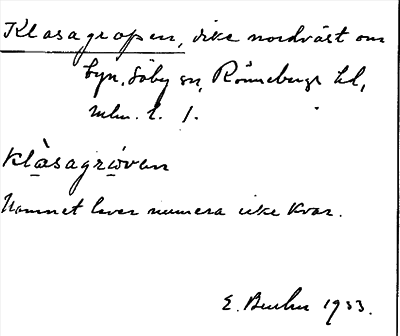 Klasagropen, dike nordväst om
byn, Säby sn, Rönnebergs hd,
mlm. l. 1.
klàsagrωven
Namnet lever numera icke kvar.
E. 1933.